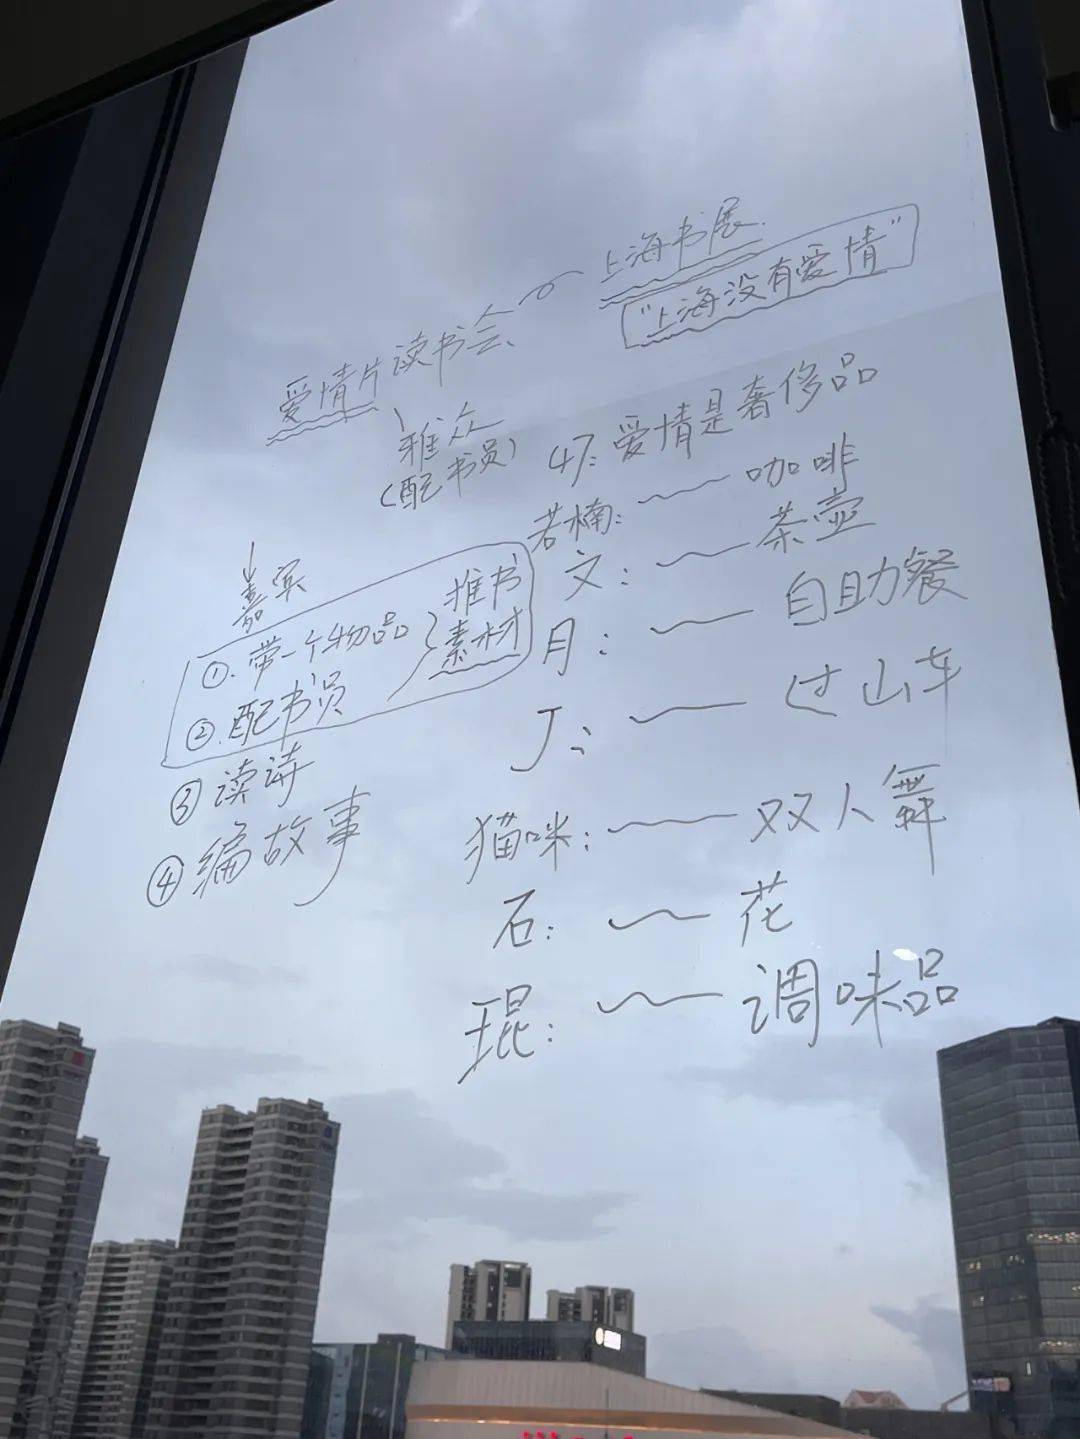 上海书展.
"上海没有爱情"
爱情片读书会、
雅众
(配书员)
47: 爱情是奢侈品
若楠: 咖啡
文: 茶壶
月: 自助餐
J: 过山车
猫咪: 双人舞
石: 花
琨: 调味品
嘉宾
①. 带一个物品
②. 配书员
推书
素材
③ 读诗
④ 编故事